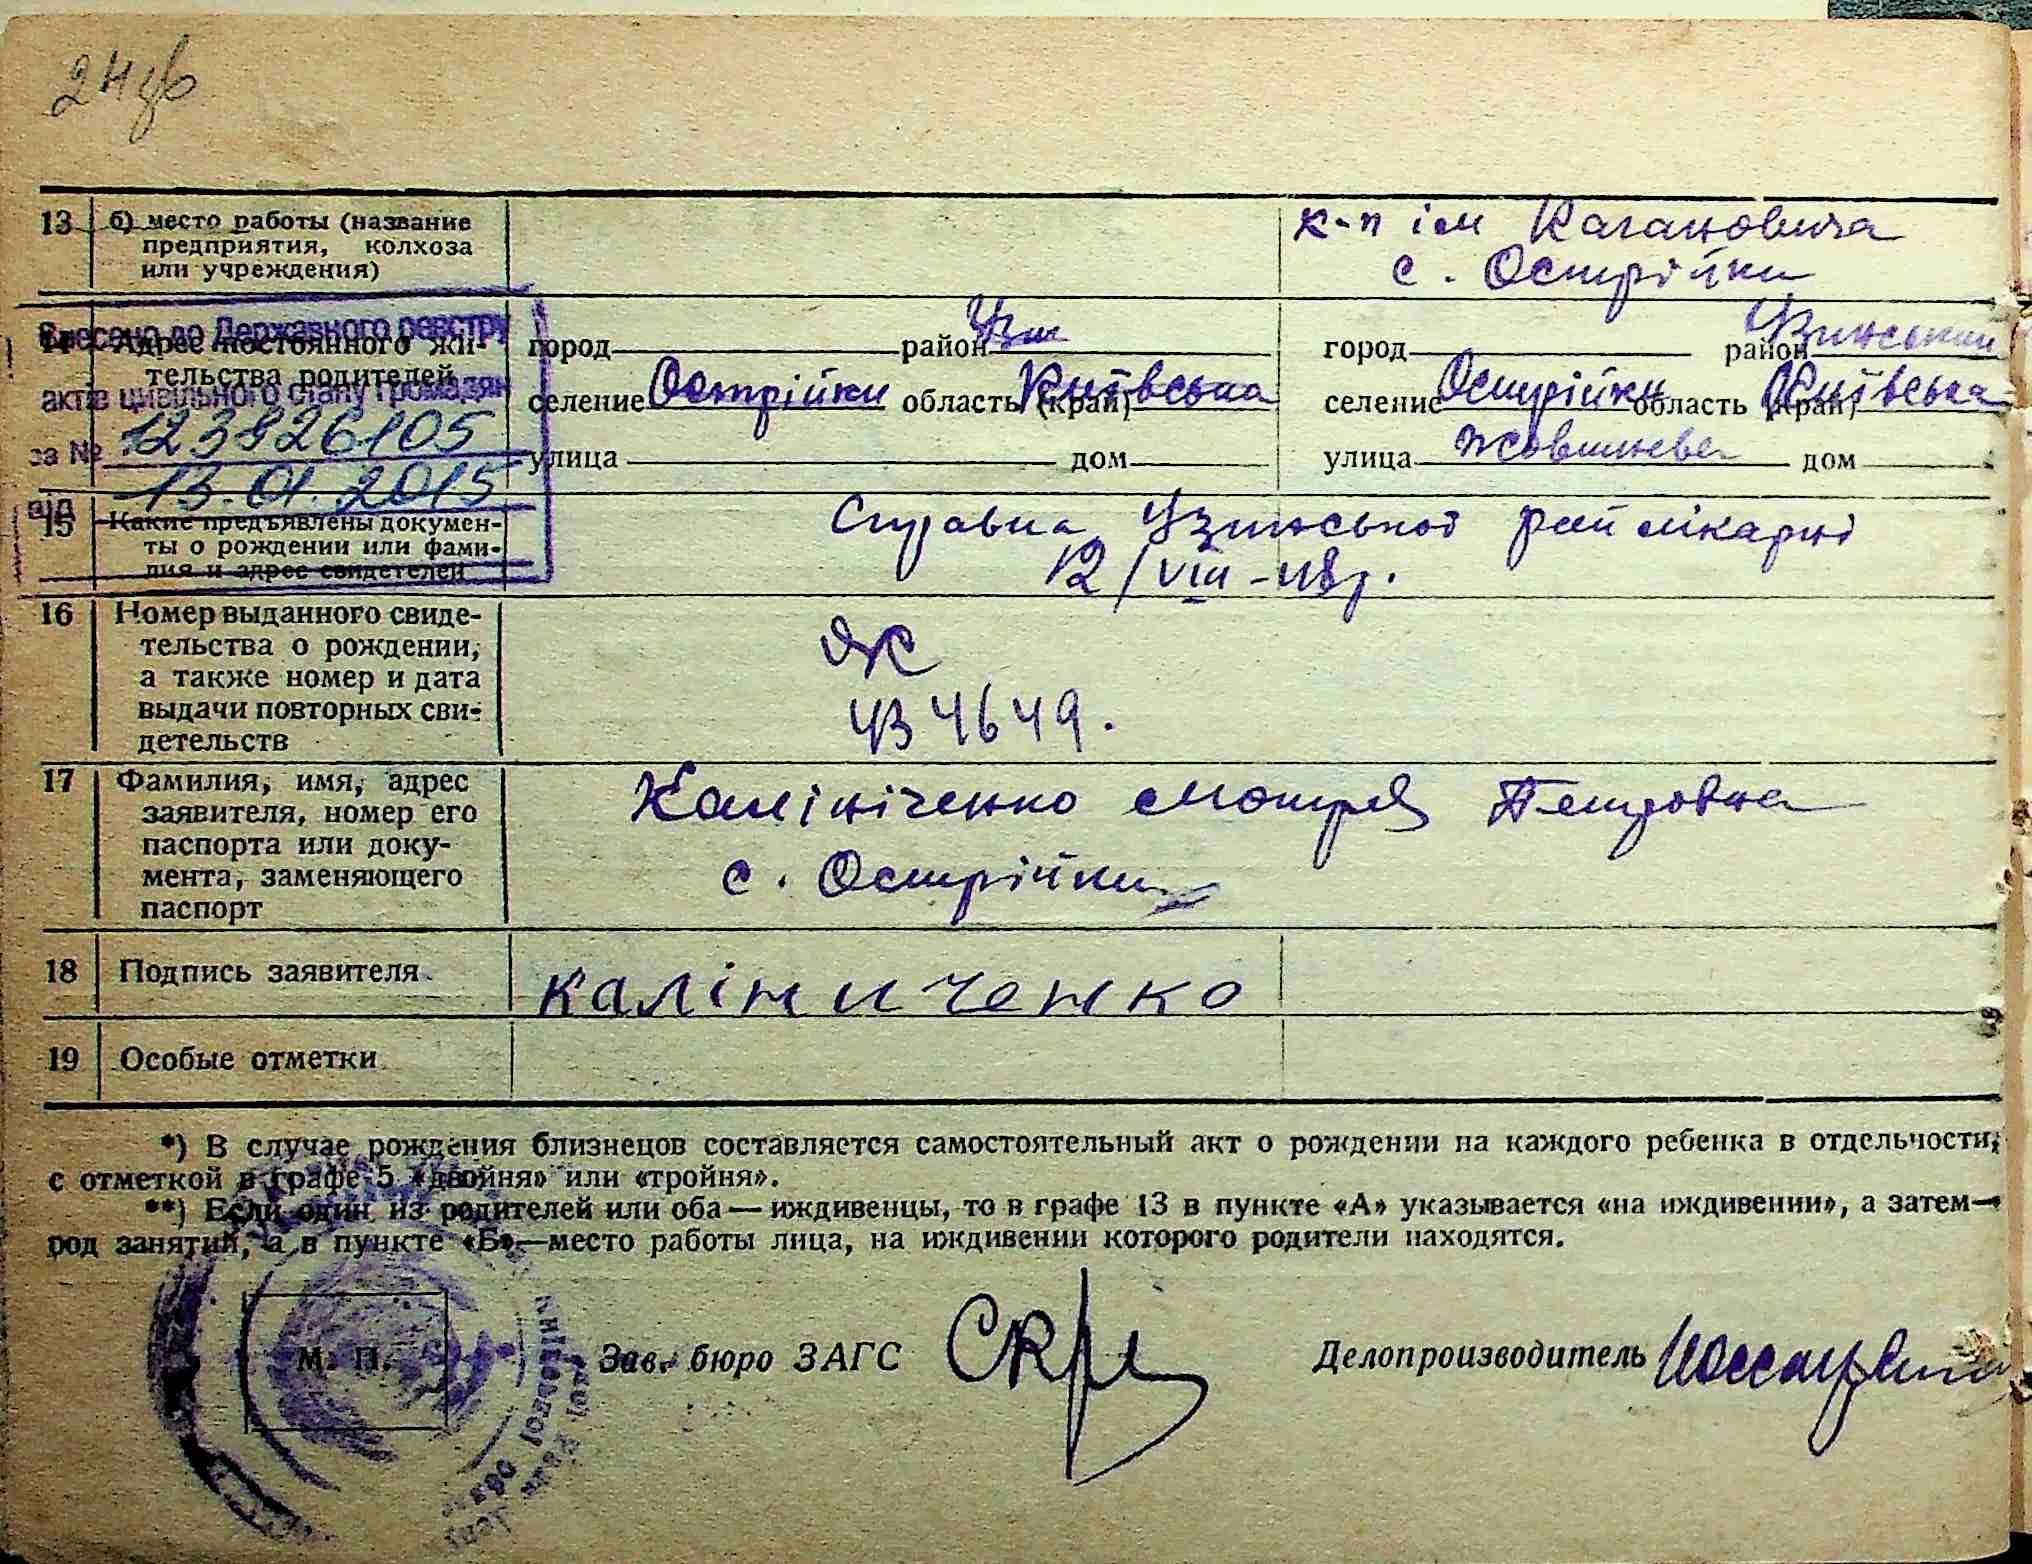 13 б) место работы (название
предприятия, колхоза
или учреждения)
к-п ім Кагановича
с. Острійки
Внесено до Державного реєстру
актів цивільного стану громадян
за № 123826105
від 13.01.2015
14 Адрес постоянного жи-
тельства родителей
город район Узин
селение Острійки область (край) Київська
улица дом
город район Узинський
селение Острійки область (край) Київська
улица Жовтнева дом
15 Какие предъявлены докумен-
ты о рождении или фами-
лия и адрес свидетелей
Справка Узинської рай лікарні
12/VIII-48р.
16 Номер выданного свиде-
тельства о рождении,
а также номер и дата
выдачи повторных сви-
детельств
ЯС
434649.
17 Фамилия, имя, адрес
заявителя, номер его
паспорта или доку-
мента, заменяющего
паспорт
Калініченко Мотря Петровна
с. Острійки
18 Подпись заявителя
Каліниченко
19 Особые отметки
*) В случае рождения близнецов составляется самостоятельный акт о рождении на каждого ребенка в отдельности,
с отметкой в графе 5 «двойня» или «тройня».
**) Если один из родителей или оба — иждивенцы, то в графе 13 в пункте «А» указывается «на иждивении», а затем—
род занятий, а в пункте «Б»—место работы лица, на иждивении которого родители находятся.
М. П.
Зав. бюро ЗАГС
Делопроизводитель